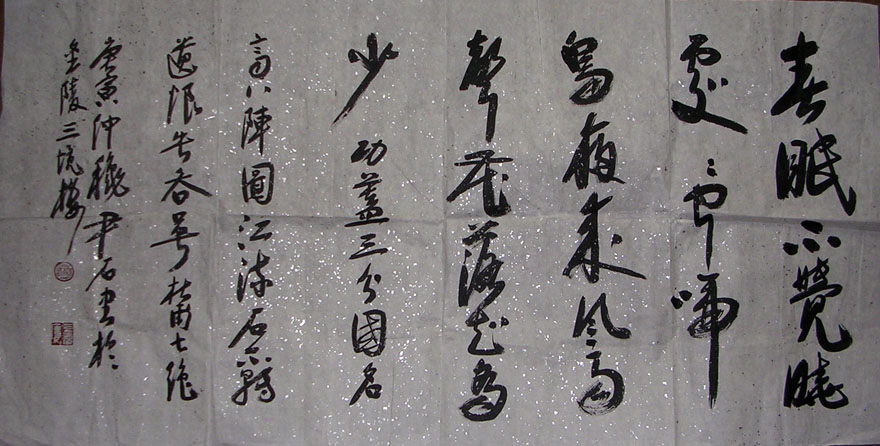 春眠不覺曉
處〻聞啼
鳥夜來風雨
聲花落知多
少 功蓋三分國名
高八陣圖江流石不轉
遺恨失吞吳 杜甫七絶
庚寅仲秋尹石書於
金陵三樓